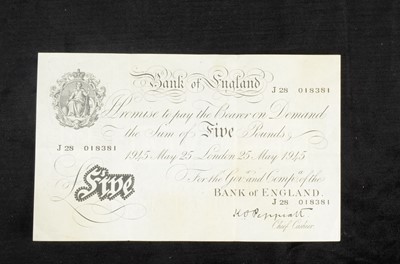 Bank of England
J 28 018381
Promise to pay the Bearer on Demand
the Sum of Five Pounds
J 28 018381
1945 May 25 London 25 May 1945
For the Govr. and Compa. of the
BANK OF ENGLAND.
Five
J 28 018381
K O Peppiatt
Chief Cashier